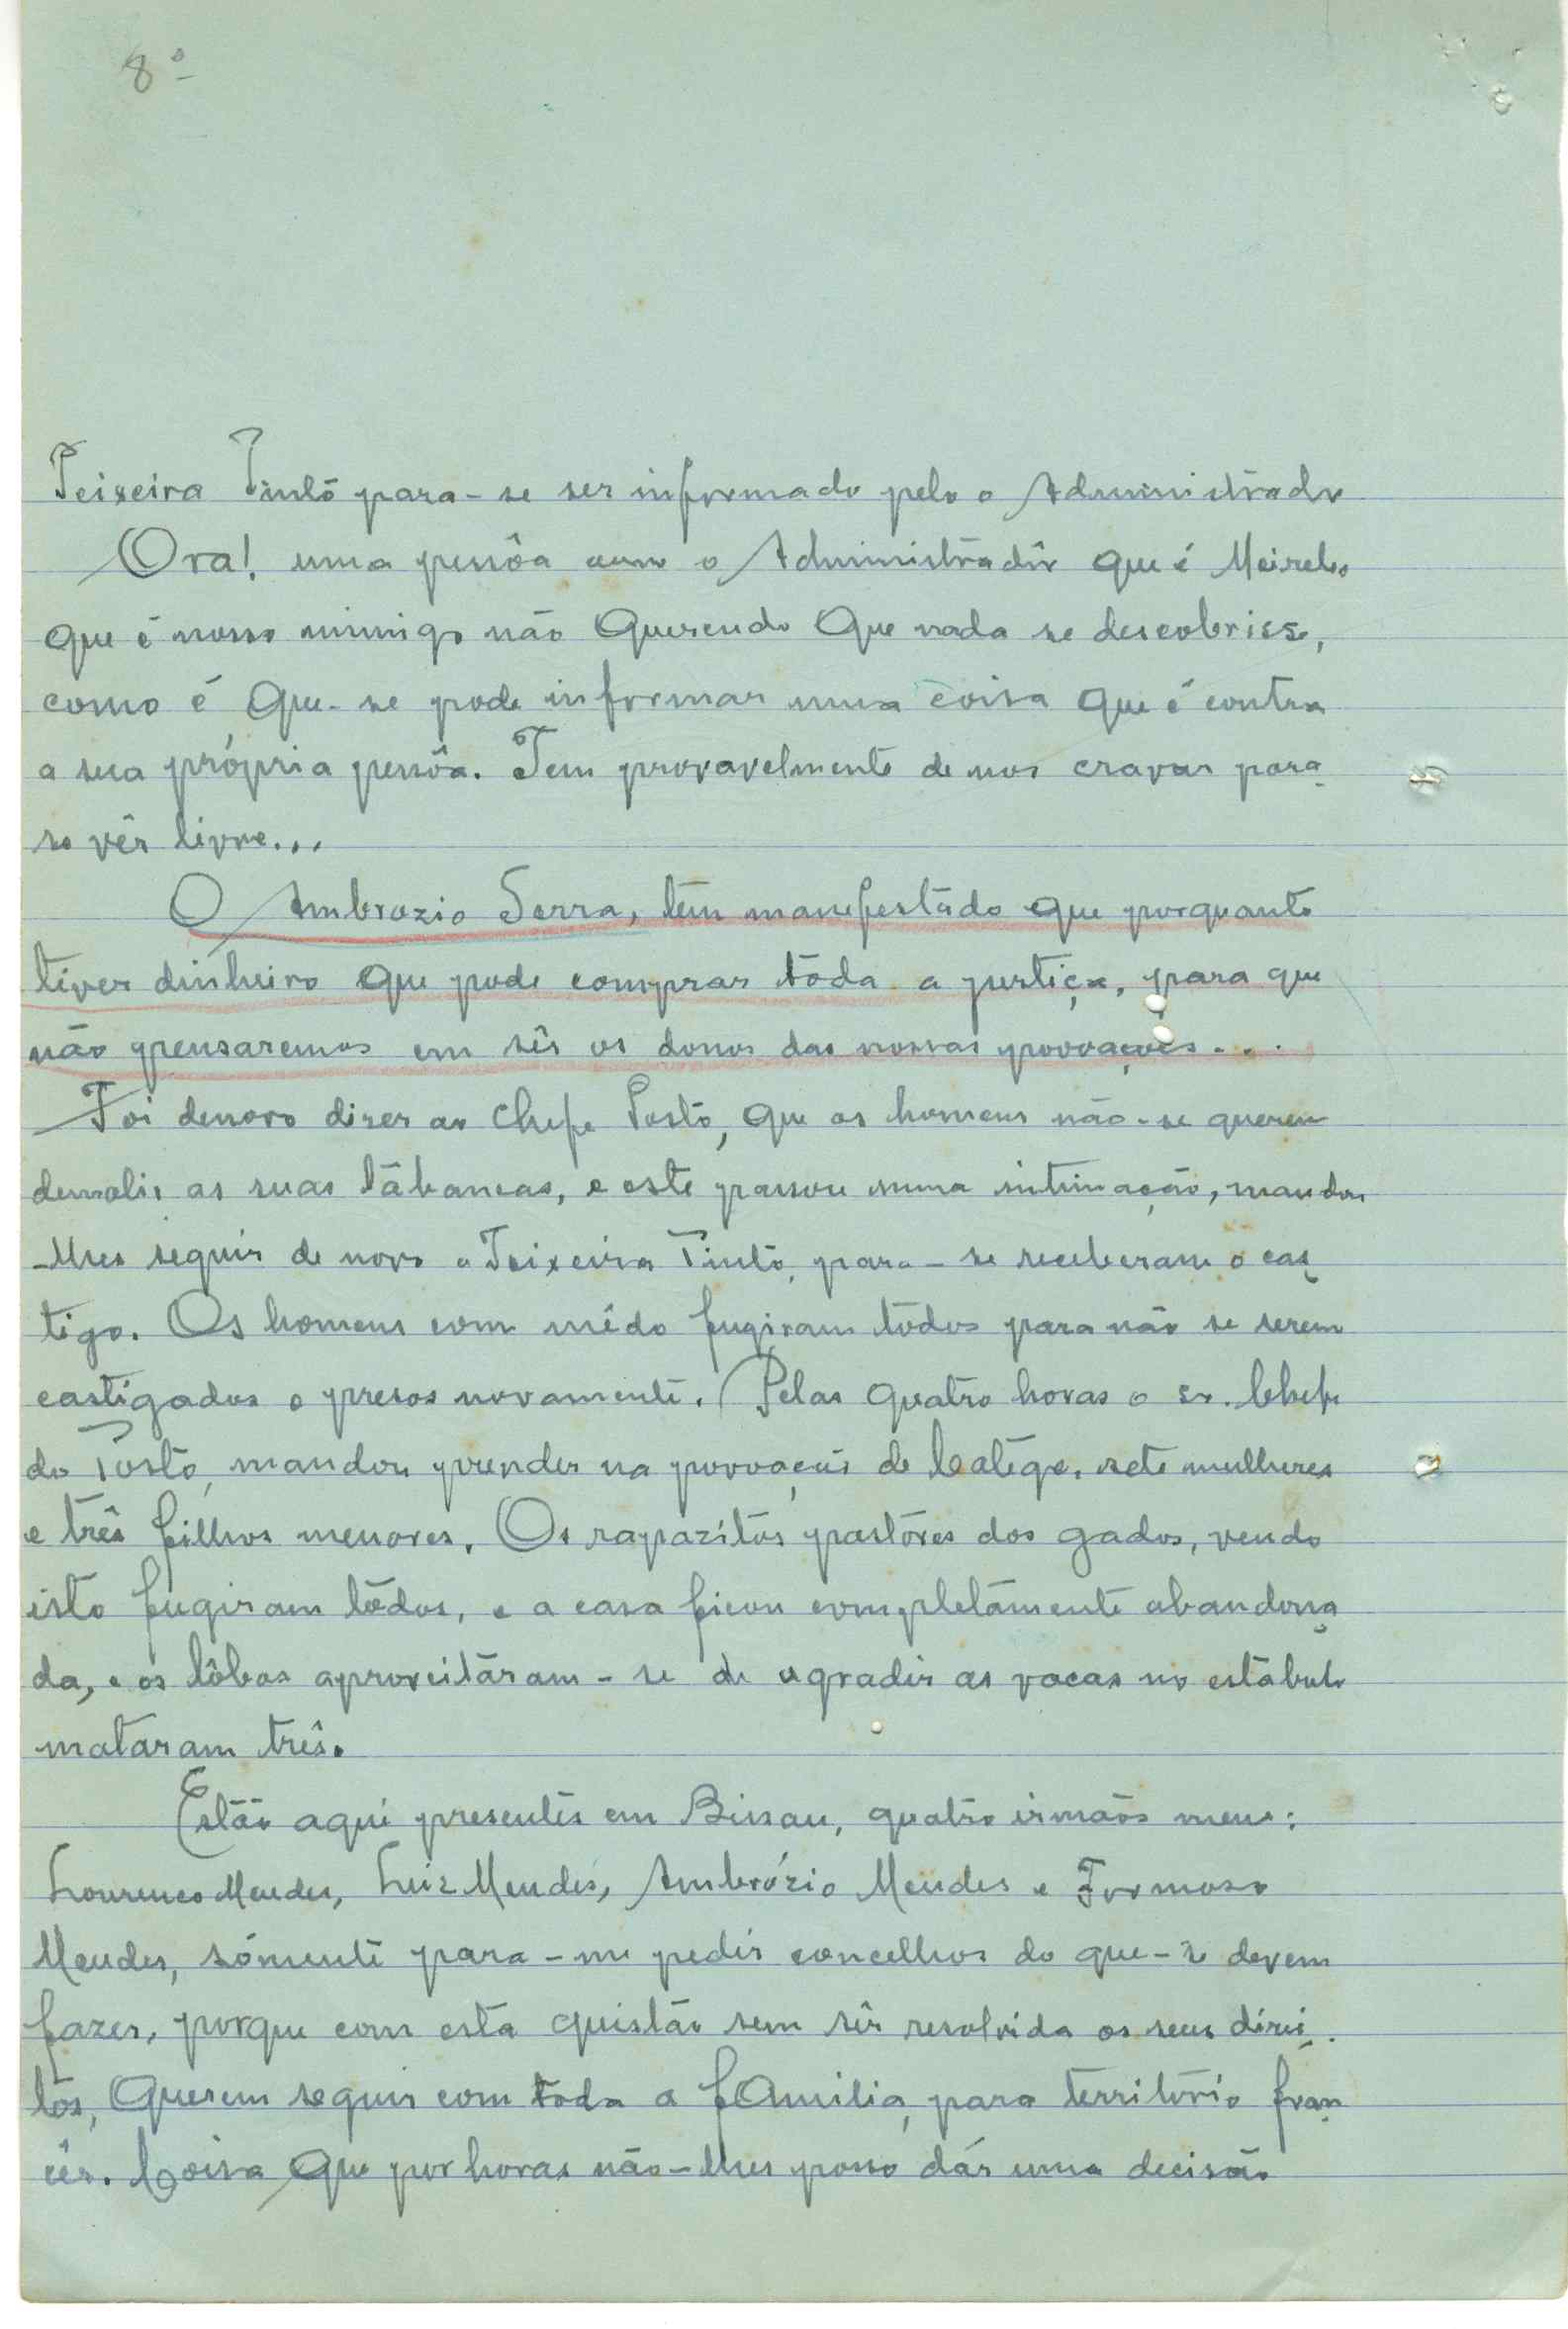 8º
Teixeira Pintô para-se ser informado pelo o Administrador
Ora!. uma pessôa como o Administradôr que é Meireles
que é nosso inimigo não querendo que nada se descobrisse,
como é que-se pode informar uma coisa que é contra
a sua própria pessôa. Tem provavelmente de nos cravar para
se vêr livre...
O Ambrozio Serra, têm manifestado que porquanto
tiver dinheiro que pode comprar tôda a justiça, para que
não pensaremos em sêr os donos das nossas povoações...
Foi denovo dizer ao Chefe Posto, que os homens não-se querem
demolir as suas tábancas, e este passou numa intimação, mandou
-lhes seguir de novo a Teixeira Pinto, para-se receberam o cas
tigo. Os homens com mêdo fugiram todos para não se serem
castigados e presos novamente. Pelas quatro horas o sr. Chefe
do Posto, mandou prender na povoação de Catêqe, sete mulheres
e três filhos menores. Os rapazitos pastôres dos gados, vendo
isto fugiram todos, e a casa ficou completamente abandona
da, e os lôbos aproveitáram-se de agradir as vacas no estabulo
mataram três.
Estão aqui presentes em Bissau, quatro irmãos meus:
Lourenco Mendes, Luiz Mendes, Ambrózio Mendes e Formoso
Mendes, sómente para-me pedir concelhos do que-se devem
fazer, porque com esta quistão sem sêr resolvida os seus direi
tos, querem seguir com toda a família, para território fran
cês. Coisa que por horas não-lhes posso dár uma decisão